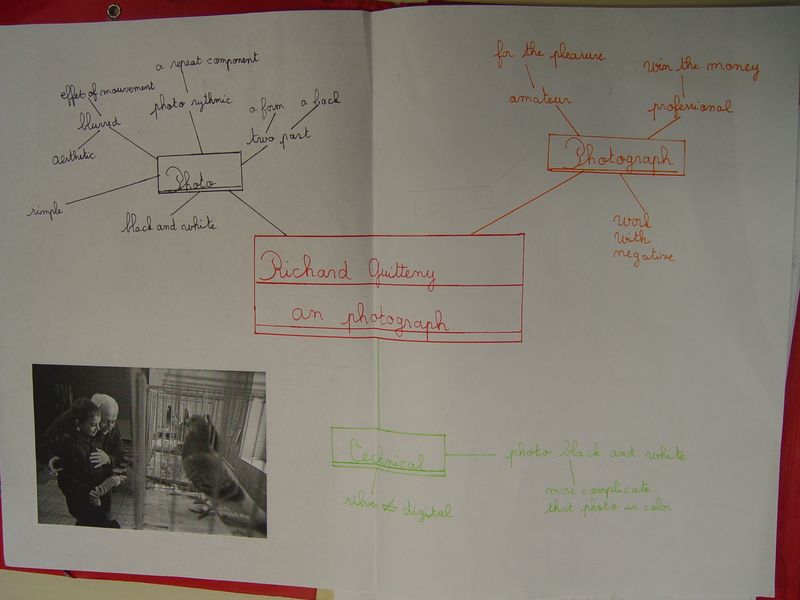 a repeat component
effet of mouvement
photo rythmic
a form
a back
blurred
two part
aesthetic
Photo
simple
black and white
for the pleasure
win the money
amateur
professional
Photograph
work
with
negative
Richard Quitteny
an photograph
Technical
photo black and white
more complicate
that photo in color
silver ≠ digital